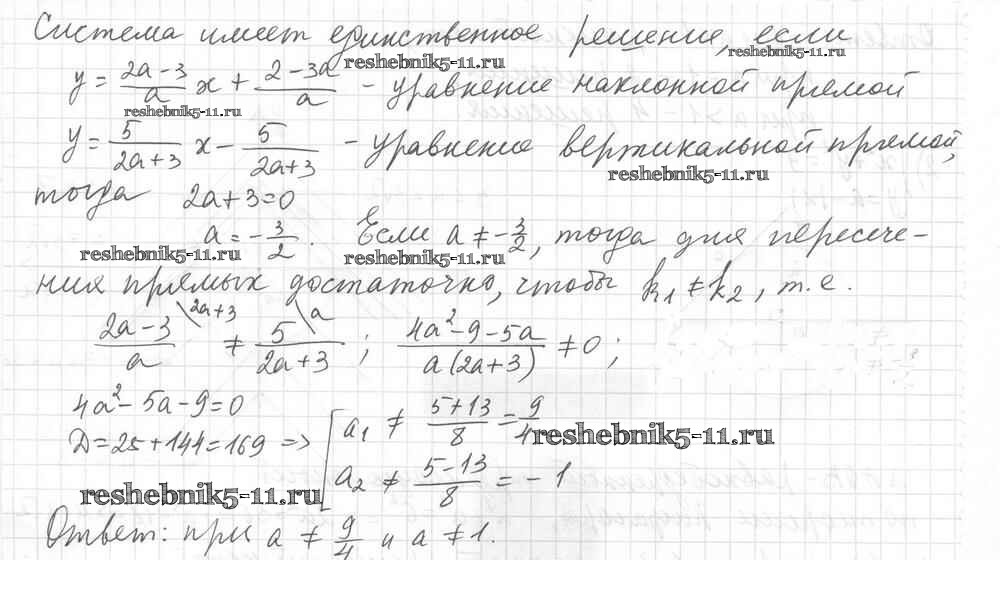 Система имеет единственное решение, если
reshebnik5-11.ru reshebnik5-11.ru
y = \frac{2a-3}{a} x + \frac{2-3a}{a} - уравнение наклонной прямой
reshebnik5-11.ru
y = \frac{5}{2a+3} x - \frac{5}{2a+3} - уравнение вертикальной прямой,
reshebnik5-11.ru
тогда 2a+3=0
a = -\frac{3}{2}. Если a ≠ -\frac{3}{2}, тогда для пересече-
reshebnik5-11.ru reshebnik5-11.ru
ния прямых достаточно, чтобы k₁ ≠ k₂, т.е.
\frac{2a-3}{a}^{\2a+3} ≠ \frac{5}{2a+3}^{\a} ; \frac{4a²-9-5a}{a(2a+3)} ≠ 0 ;
4a²-5a-9=0
D=25+144=169 => [ a₁ ≠ \frac{5+13}{8} = \frac{9}{4}
reshebnik5-11.ru
a₂ ≠ \frac{5-13}{8} = -1
reshebnik5-11.ru
Ответ: при a ≠ \frac{9}{4} и a ≠ 1.